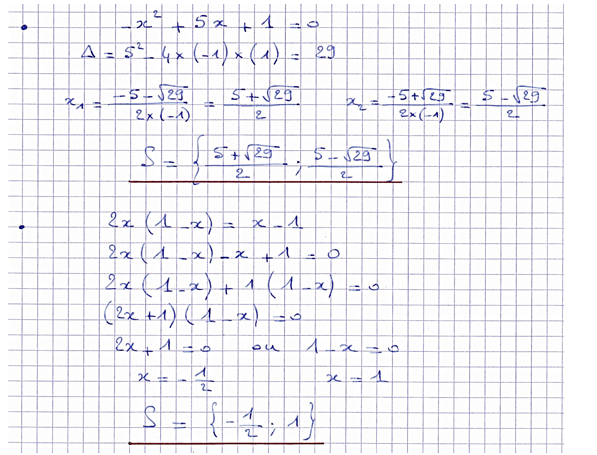 -x² + 5x + 1 = 0
Δ = 5² - 4×(-1)×(1) = 29
x₁ = (-5-√29)/(2×(-1)) = (5+√29)/2    x₂ = (-5+√29)/(2×(-1)) = (5-√29)/2
S = {(5+√29)/2 ; (5-√29)/2}
2x(1-x) = x-1
2x(1-x)-x+1 = 0
2x(1-x)+1(1-x) = 0
(2x+1)(1-x) = 0
2x+1 = 0 ou 1-x = 0
x = -1/2    x = 1
S = {-1/2 ; 1}